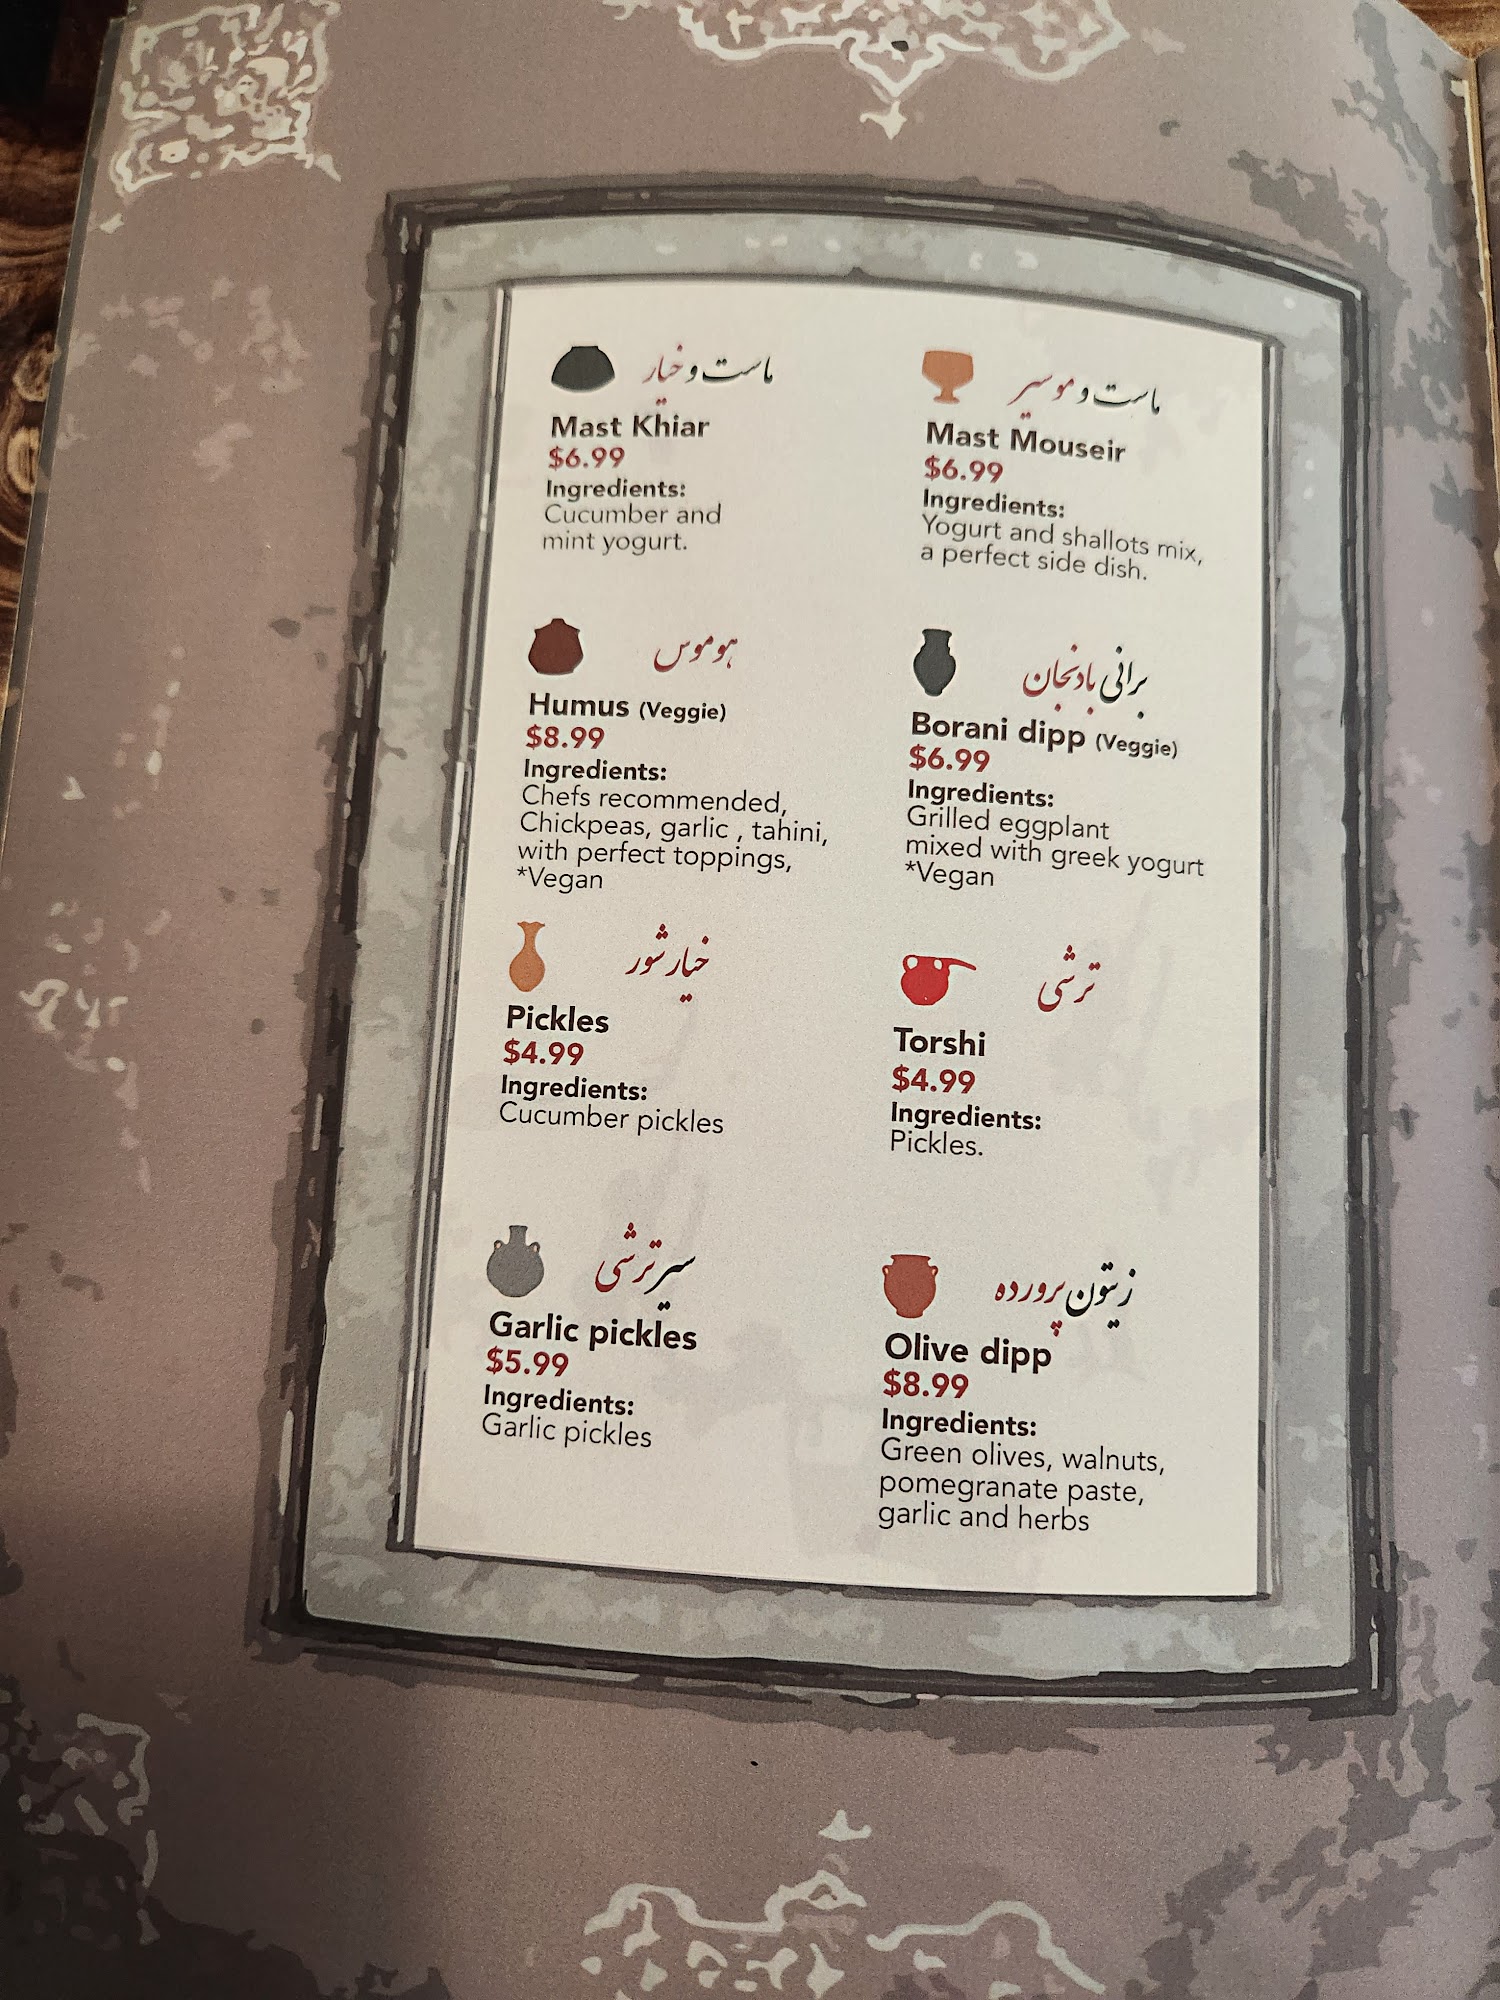 ماست و خیار
Mast Khiar
$6.99
Ingredients:
Cucumber and
mint yogurt.
ماست و موسیر
Mast Mouseir
$6.99
Ingredients:
Yogurt and shallots mix,
a perfect side dish.
هوموس
Humus (Veggie)
$8.99
Ingredients:
Chefs recommended,
Chickpeas, garlic , tahini,
with perfect toppings,
*Vegan
برانی بادنجان
Borani dipp (Veggie)
$6.99
Ingredients:
Grilled eggplant
mixed with greek yogurt
*Vegan
خیارشور
Pickles
$4.99
Ingredients:
Cucumber pickles
ترشی
Torshi
$4.99
Ingredients:
Pickles.
سیرترشی
Garlic pickles
$5.99
Ingredients:
Garlic pickles
زیتون پرورده
Olive dipp
$8.99
Ingredients:
Green olives, walnuts,
pomegranate paste,
garlic and herbs